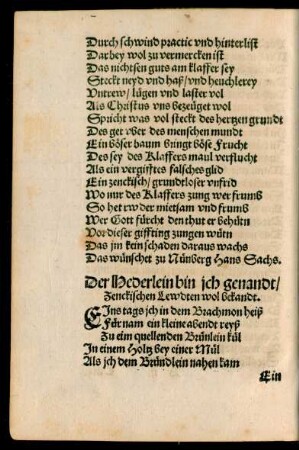 Durch schwind practic vnd hinterlist
Darbey wol zu vermercken ist
Das nichtsen guts am klaffer sey
Steckt neyd vnd haß/ vnd heuchlerey
Vntrew/ lügen vnd laster vol
Als Christus vns bezeüget wol
Spricht was vol steckt des hertzen grundt
Des get vber des menschen mundt
Ein böser baum bringt böse Frucht
Des sey des Klaffers maul verflucht
Als ein vergifftes falsches glid
Ein zenckisch/ grundtloser vnfrid
Wo nur des Klaffers zung wer frumb
So het yder mietsam vnd frumb
Wer Gott fürcht den thut er behütn
Vor dieser giffting zungen wütn
Das jm kein schaden daraus wachs
Das wünschet zu Nürnberg Hans Sachs.
Der Hederlein bin jch genandt/
Zenckischen Lewdten wol bekandt.
Eins tags jch in dem Brachmon heiß
Für nam ein kleine abendt reyß
Zu eim quellenden Brünlein kül
In einem Holtz bey einer Mül
Als jch dem Bründlein nahen kam
Ein